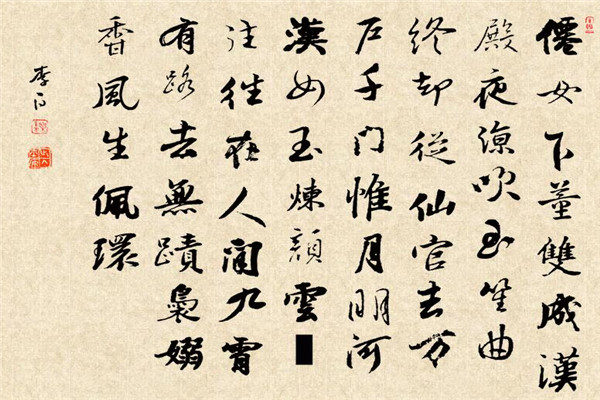 僊女下董雙成漢
殿夜涼吹玉笙曲
終却從仙官去万
戶千門惟月明河
漢女玉煉顔雲
往往在人間九霄
有路去無蹟裊嫋
香風生佩環
李白